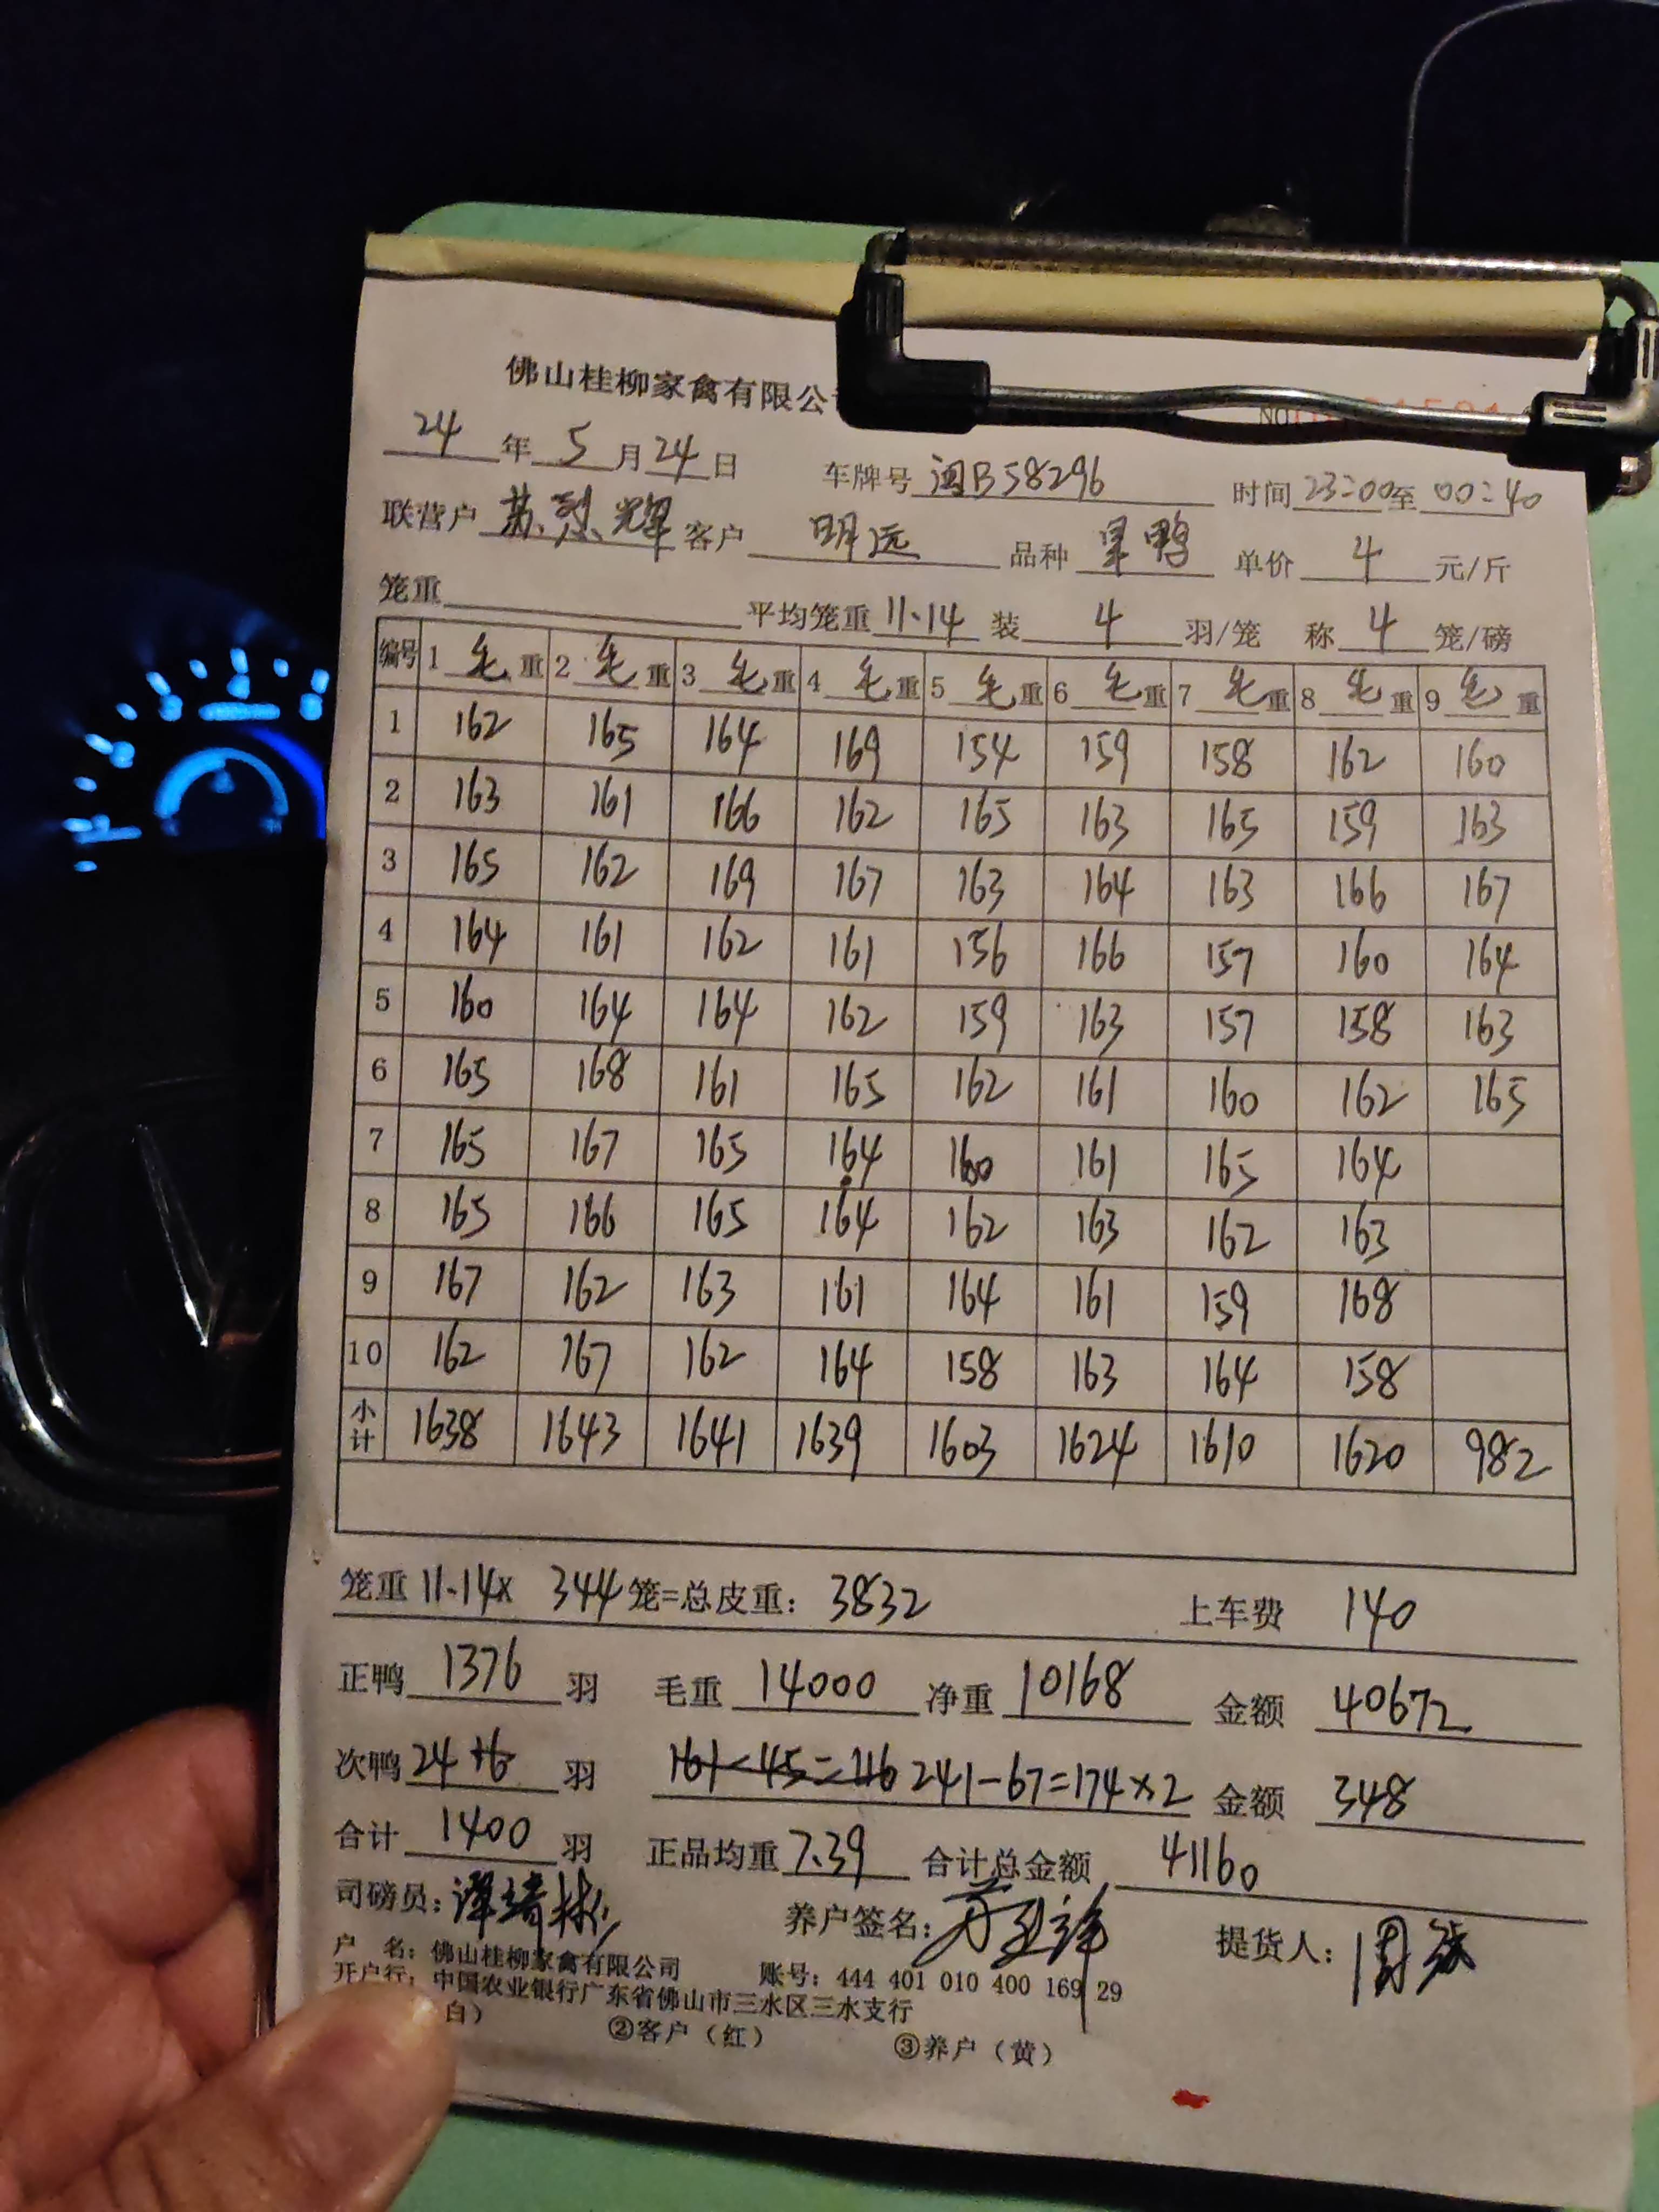 佛山桂柳家禽有限公
NO
24年5月24日 车牌号 闽B58296 时间23:00至00:40
联营户 苏烈辉 客户 明远 品种 旱鸭 单价 4 元/斤
笼重 平均笼重 11.14 装 4 羽/笼 称 4 笼/磅
编号 1毛重 2毛重 3毛重 4毛重 5毛重 6毛重 7毛重 8毛重 9毛重
1 162 165 164 169 154 159 158 162 160
2 163 161 166 162 165 163 165 159 163
3 165 162 169 167 163 164 163 166 167
4 164 161 162 161 156 166 157 160 164
5 160 164 164 162 159 163 157 158 163
6 165 168 161 165 162 161 160 162 165
7 165 167 165 164 160 161 165 164
8 165 166 165 164 162 163 162 163
9 167 162 163 161 164 161 159 168
10 162 167 162 164 158 163 164 158
小计 1638 1643 1641 1639 1603 1624 1610 1620 982
笼重 11.14× 344 笼=总皮重: 3832 上车费 140
正鸭 1376 羽 毛重 14000 净重 10168 金额 40672
次鸭 24 +6 羽 161-45=116 241-67=174×2 金额 348
合计 1400 羽 正品均重 7.39 合计总金额 41160
司磅员: 养户签名: 提货人:
户 名: 佛山桂柳家禽有限公司 账号: 444 401 010 400 169 29
开户行: 中国农业银行广东省佛山市三水区三水支行
白） ②客户（红） ③养户（黄）